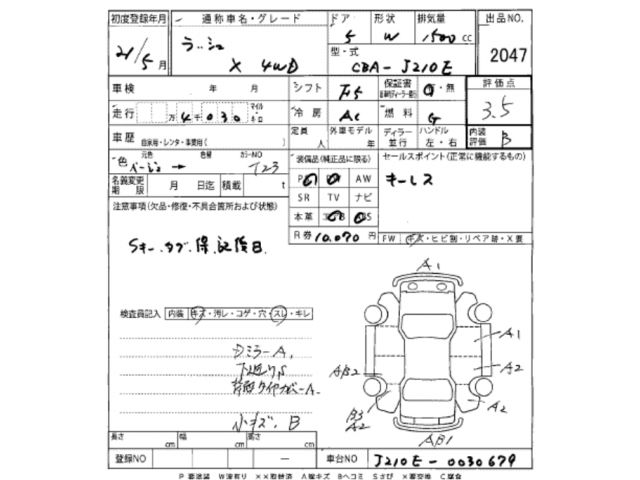 初度登録年月 通称車名・グレード ドア 形状 排気量 出品NO.
21/5月 ラッシュ X 4WD 5 W 1500cc 2047
型・式 CBA-J210E
車検 年 月 シフト F5 保証書 有・無 評価点
走行 万4千030 マイル キロ 冷房 AC 燃料 G 3.5
車歴 自家用・レンタ・事業用( ) 定員 人 外車モデル 年 ディーラー 並行 ハンドル 左・右 内装評価 B
色 元色 ベージュ → 色替 カラーNO T23 装備品(純正品に限る) セールスポイント(正常に機能するもの)
名義変更期限 月 日迄 積載 t P AW キーレス
SR TV ナビ
注意事項(欠品・修復・不具合箇所および状態) 本革
R券 10,070円 FW キズ・ヒビ割・リペア跡・X要
Sキー、タブ、保、記後日
検査員記入 内装 キズ・汚レ・コゲ・穴・スレ・キレ
A1
Dミラー A、
A1
下廻りS
AB2
A2
背面タイヤカバーA
小キズ、B
B3
A2
A2
AB1
長さ cm 幅 cm 高さ cm
登録NO ー 車台NO J210E-0030679
P 要塗装 W 波有り ××取替済 A 線キズ Bヘコミ Sさび ×要交換 C腐食